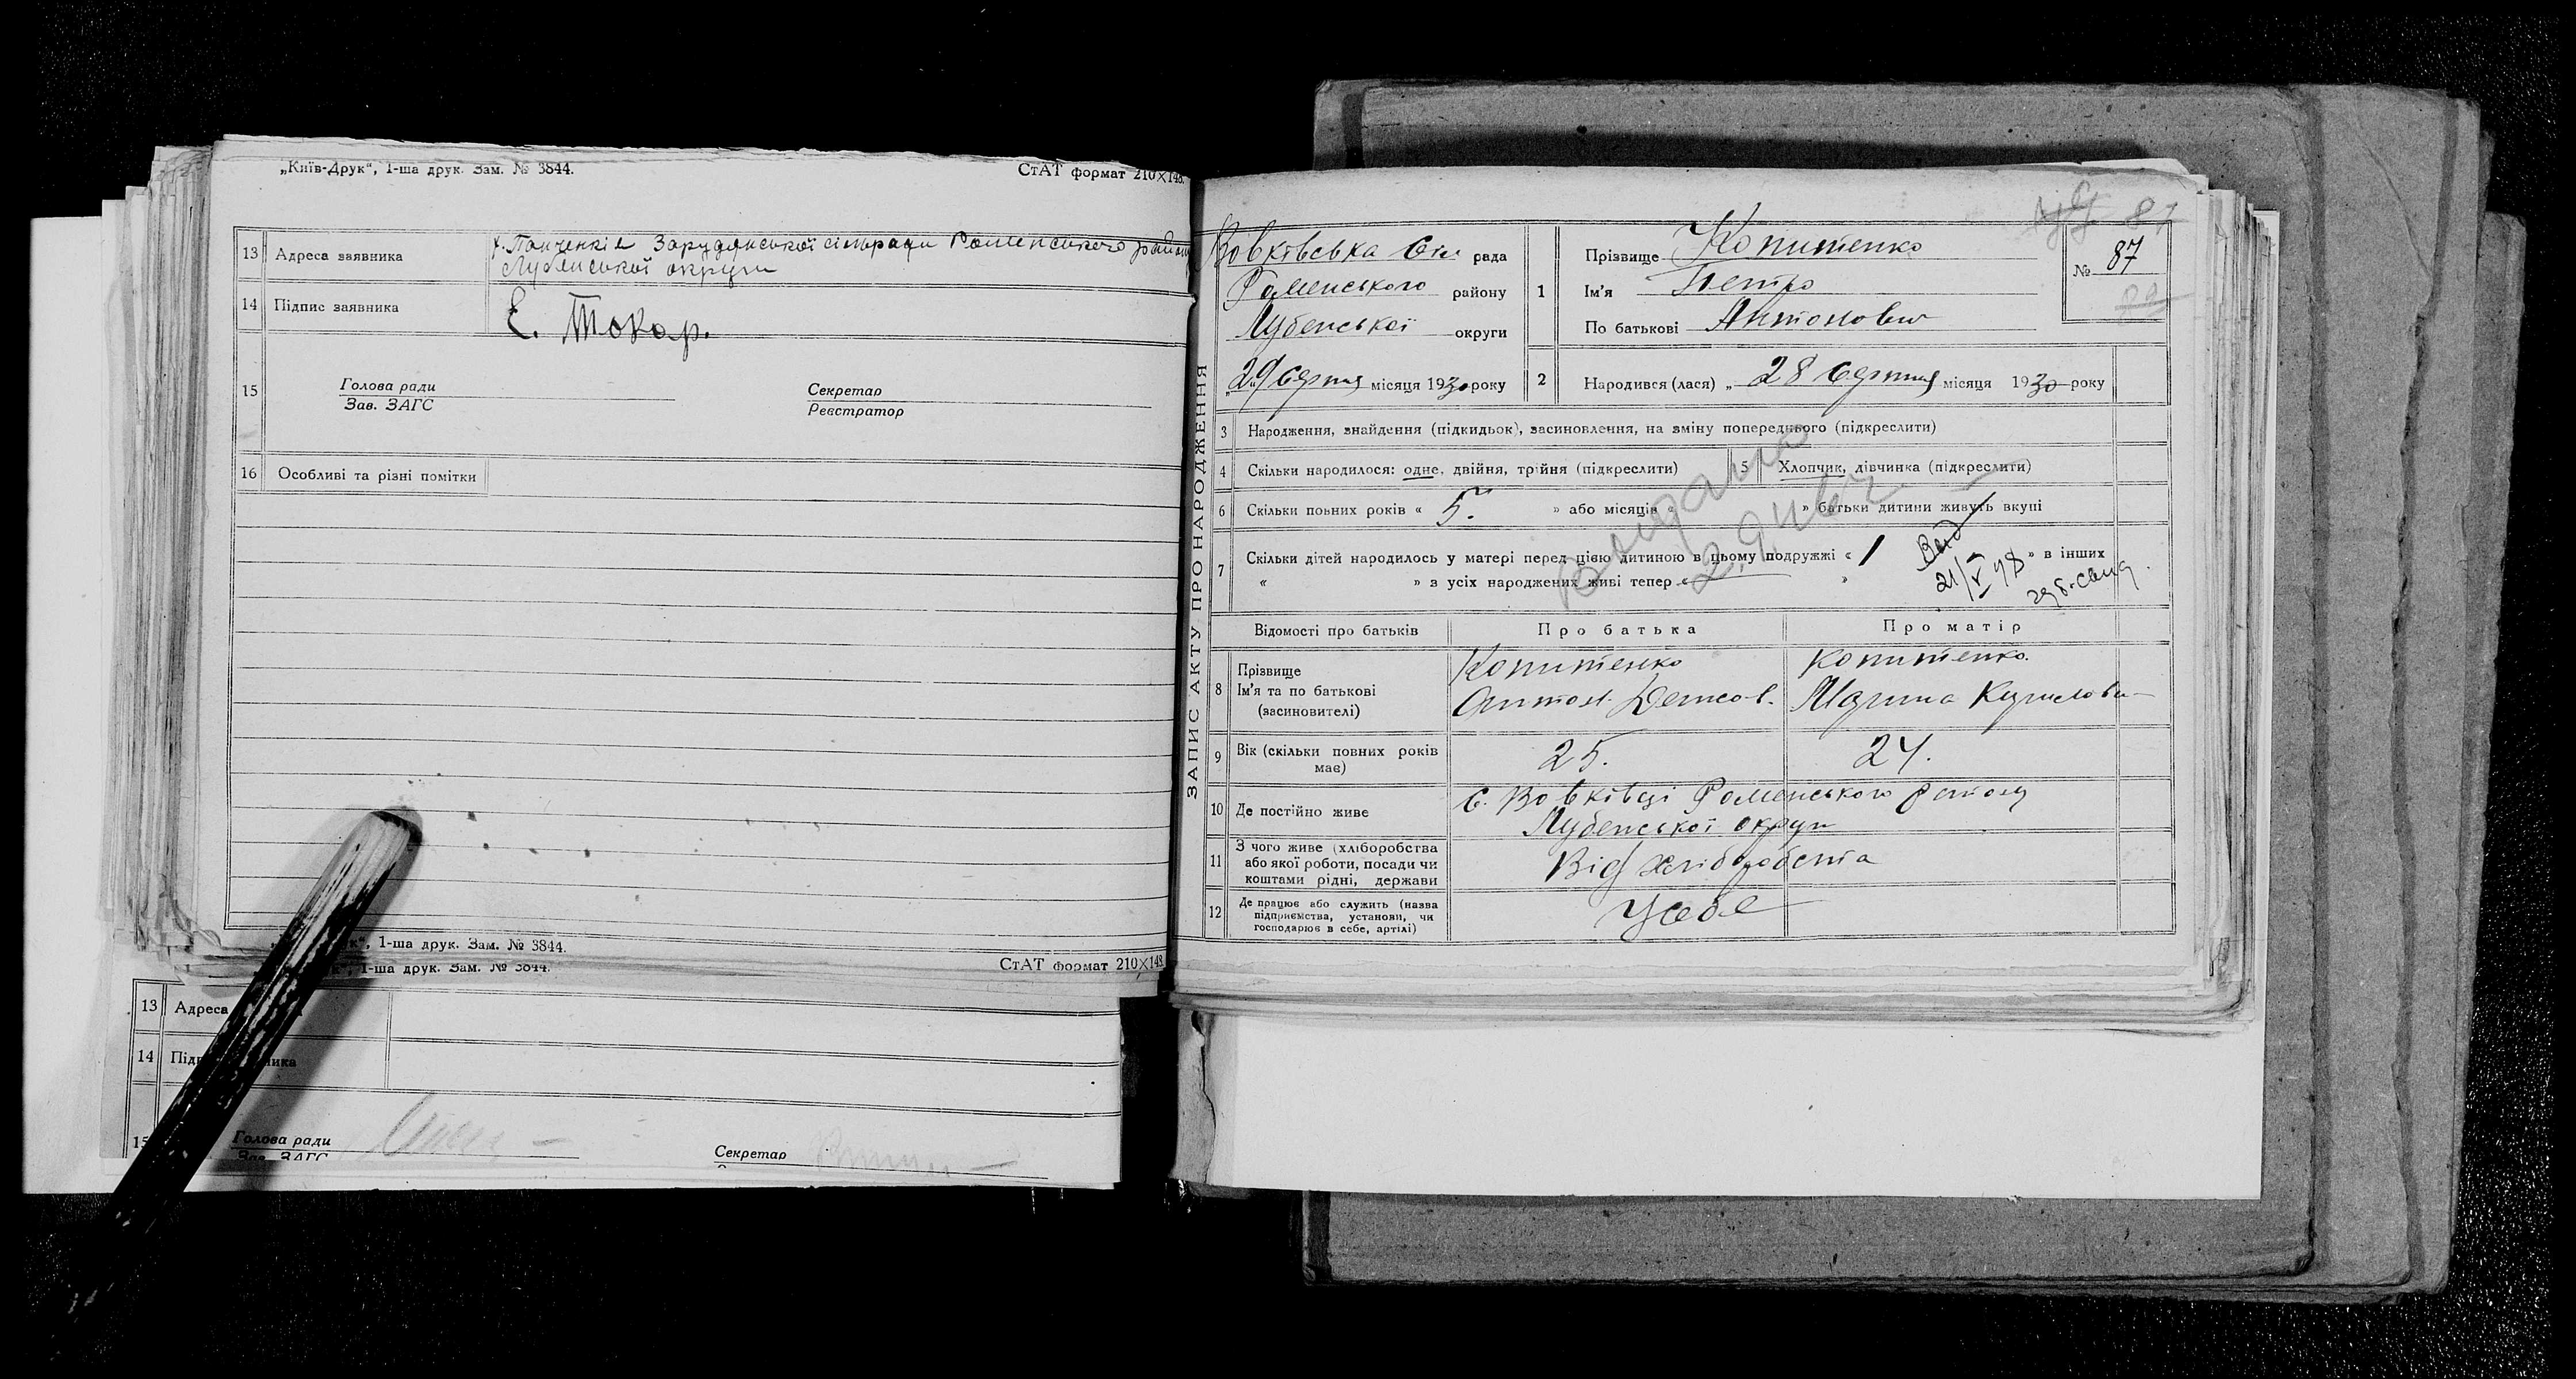 „Київ-Друк“, 1-ша друк. Зам. № 3844.
СтАТ формат 210×148.
13 Адреса заявника х. Панченків Зарудянської сільради Роменського району
Лубенської округи
14 Підпис заявника Е. Токар.
15 Голова ради
Зав. ЗАГС
Секретар
Реєстратор
16 Особливі та різні помітки
1-ша друк. Зам. № 3844.
1-ша друк. Зам. № 3844.
СтАТ формат 210×148
13 Адреса
14
15 Голова ради
Зав. ЗАГС
Секретар
ЗАПИС АКТУ ПРО НАРОДЖЕННЯ
87
Вовківська Сіл рада
Роменського району
Лубенської округи
„29 серпня місяця 1930 року
1 Прізвище Копитенко
Ім'я Петро
По батькові Антонович
№ 87
2 Народився (лася) „ 28 серпня місяця 1930 року
3 Народження, знайдення (підкидьок), засиновлення, на зміну попереднього (підкреслити)
4 Скільки народилося: одне, двійня, трійня (підкреслити)
5 Хлопчик, дівчинка (підкреслити)
6 Скільки повних років « 5. » або місяців « » батьки дитини живуть вкупі
7 Скільки дітей народилось у матері перед цією дитиною в цьому подружжі « 1 » в інших
« » з усіх народжених живі тепер « »
Видано
Вид
21/V 48
Відомості про батьків
Про батька
Про матір
8 Прізвище
Ім'я та по батькові
(засиновителі)
Копитенко
Антон
Копитенко.
Марина Кирилов
9 Вік (скільки повних років
має)
25.
24.
10 Де постійно живе
с. Вовківці Роменського району
Лубенської округи
11 З чого живе (хліборобства
або якої роботи, посади чи
коштами рідні, держави
Від хліборобства
12 Де працює або служить (назва
підприємства, установи, чи
господарює в себе, артілі)
У себе